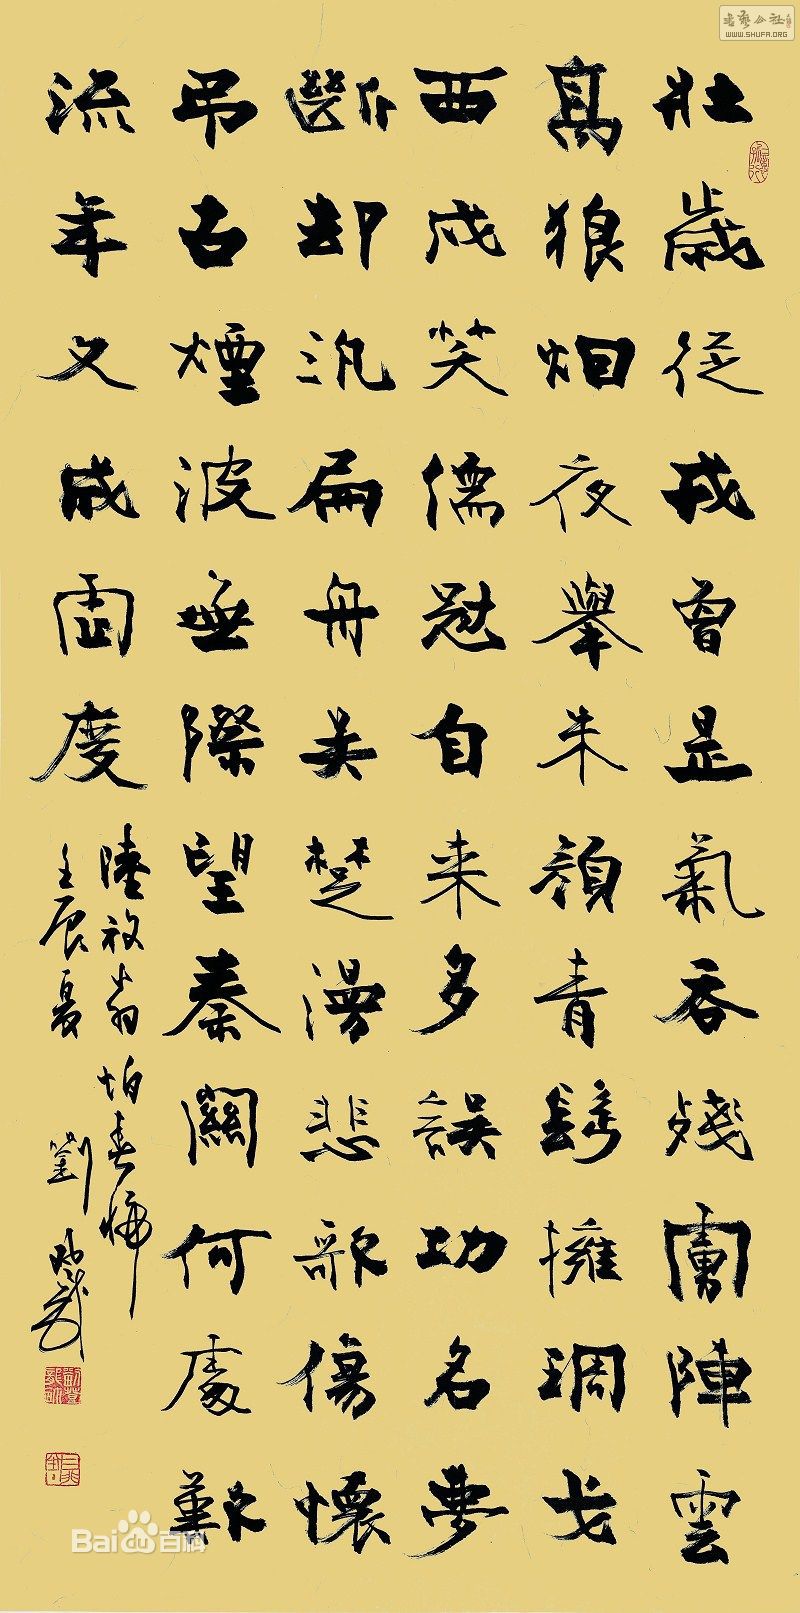 壯歲從戎曾是氣吞殘虜陣雲
高狼烟夜舉朱顏青鬢擁琱戈
西戍笑儒冠自来多誤功名夢
斷却汎扁舟吳楚漫悲歌傷懷
吊古煙波無際望秦關何處歎
流年又成虛度
陸放翁 怕春歸
壬辰夏 劉
WWW.SHUFA.ORG
Bai百科